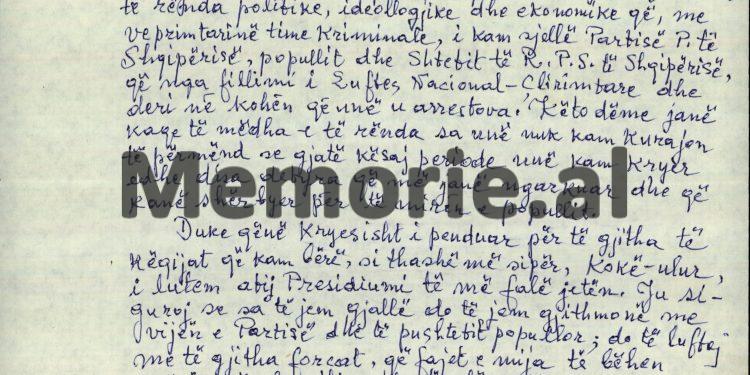 të rënda politike, ideollogjike dhe ekonomike që, me
veprimtarinë time Kriminale, i kam sjellë Partisë P. të
Shqipërisë, popullit dhe Shtetit të R.P.S. të Shqipërisë,
që nga fillimi i Luftës Nacional-Clirimtare dhe
deri në kohën që unë u arrestova. Këto dëme janë
kaqe të mëdha e të rënda sa unë nuk kam Kurajon
të përmënd se gjatë kësaj periode unë kam Kryer
edhe disa detyra që më janë ngarkuar dhe që
kanë shërbyer për të mirën e popullit.
Memorie.al
Duke qënë Kryesisht i penduar për të gjitha të
Këqijat që kam bërë, si thashë më sipër, Kokë-ulur,
i lutem atij Presidiumi të më falë jetën. Ju si-
guroj se sa të jem gjallë do të jem gjithmonë me
vijën e Partisë dhe të pushtetit popullor; do të luftoj
me të gjitha forcat, që fajet e mija të bëhen